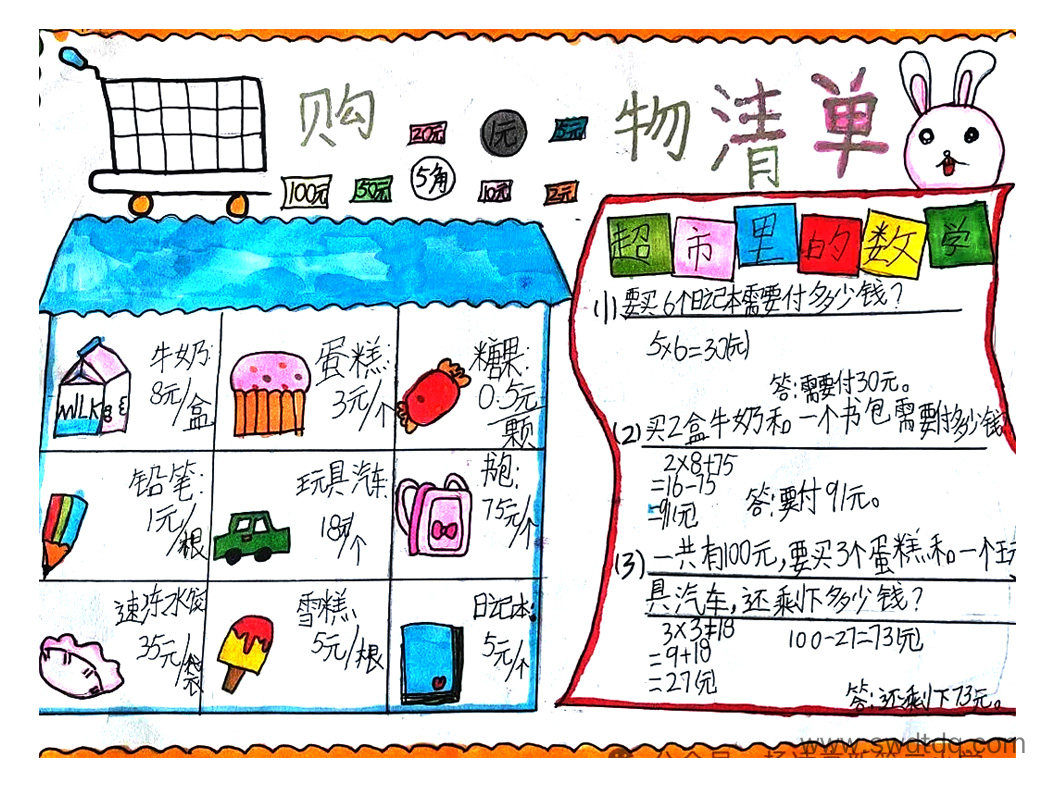 购物清单
20元 1元 5元
100元 50元 5角 10元 2元
牛奶:
8元/盒
MILK
蛋糕:
3元/个
糖果:
0.5元/颗
铅笔:
1元/根
玩具汽车
18元/个
书包:
75元/个
速冻水饺
35元/袋
雪糕:
5元/根
日记本:
5元/个
超市里的数学
(1)要买6个日记本需要付多少钱?
5×6=30(元)
答:需要付30元。
(2)买2盒牛奶和一个书包需要付多少钱
2×8+75
=16-75
=91元
答:要付91元。
(3)一共有100元,要买3个蛋糕和一个玩
具汽车,还剩下多少钱?
3×3+18
=9+18
=27(元
100-27=73(元
答:还剩下73元。
www.swdtdq.com